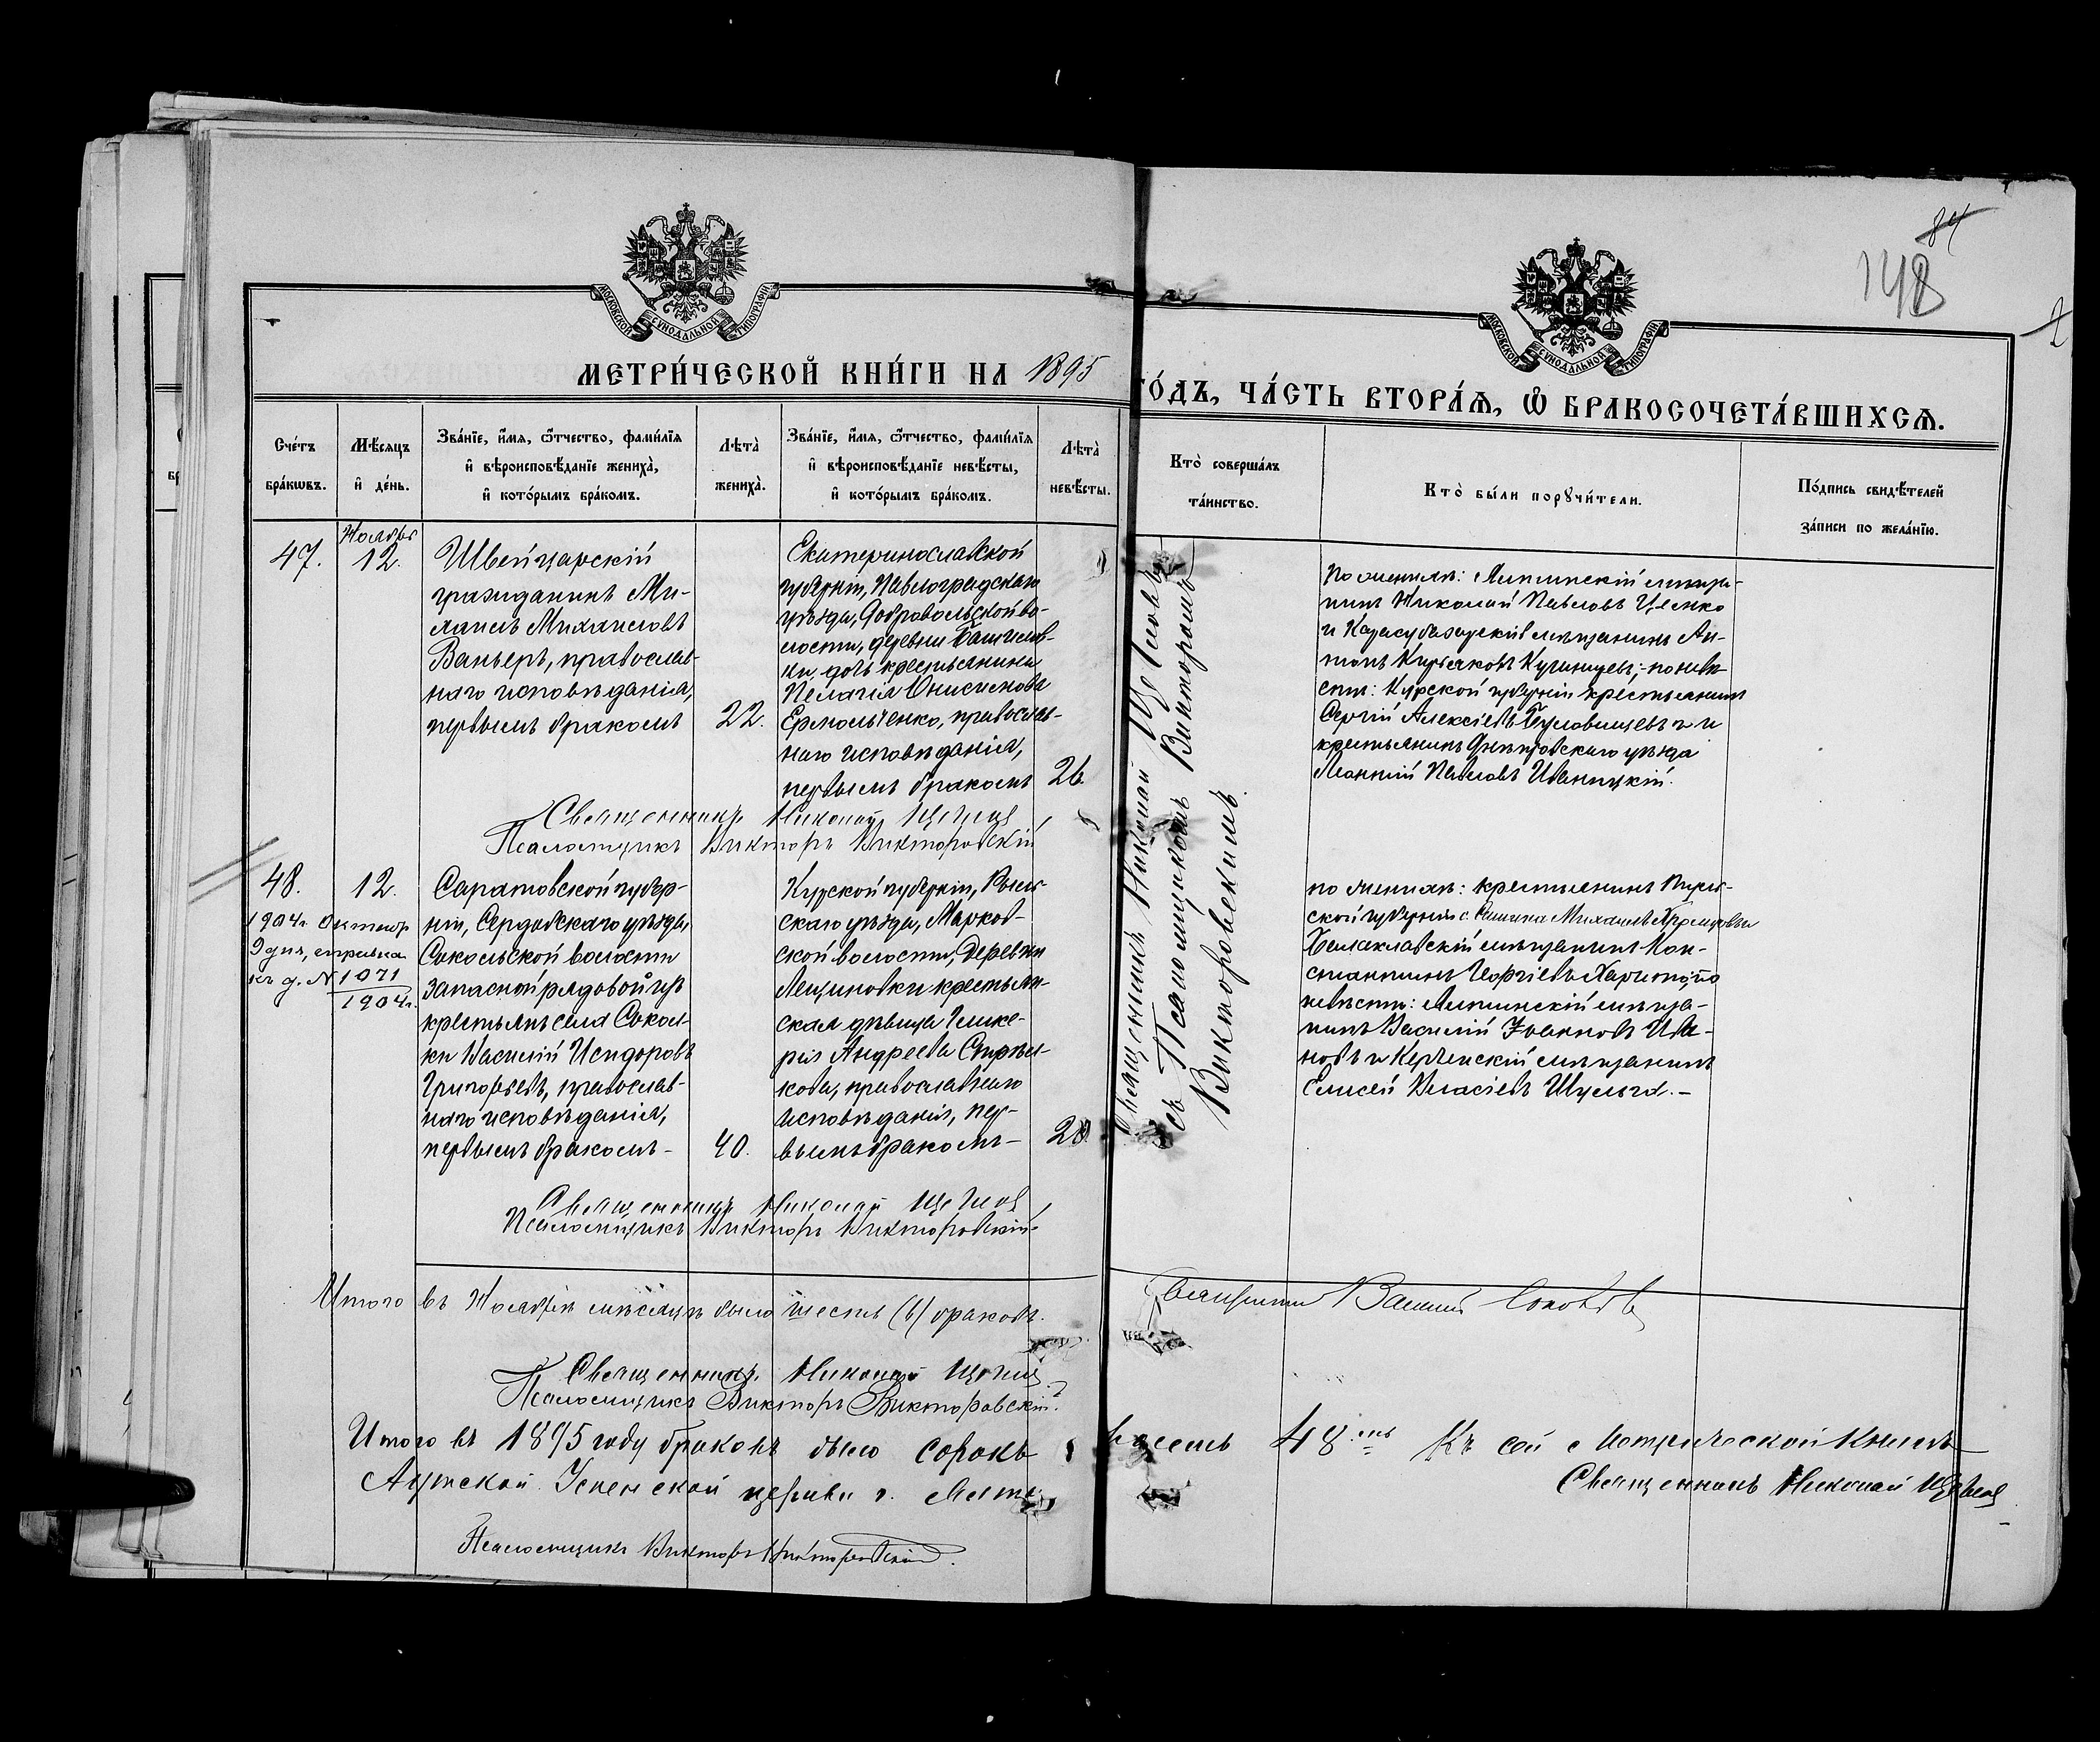 84
148
МОСКОВСКОЙ СѴНОДАЛЬНОЙ ТИПОГРАФІИ
МОСКОВСКОЙ СѴНОДАЛЬНОЙ ТИПОГРАФІИ
МЕТРИ́ЧЕСКОЙ КНИ́ГИ НА 1895 ГО́ДЪ, ЧА́СТЬ ВТОРА́Ѧ, Ѽ БРАКОСОЧЕТА́ВШИХСѦ.
Сче́тъ
бра́кѡвъ.
Мѣ́сѧцъ
и҆ де́нь.
Зва́нїе, и҆́мѧ, ѻ҆́тчество, фами́лїѧ
и҆ вѣроисповѣ́данїе жениха̀,
и҆ кото́рымъ бра́комъ.
Лѣта̀
жениха̀.
Зва́нїе, и҆́мѧ, ѻ҆́тчество, фами́лїѧ
и҆ вѣроисповѣ́данїе невѣ́сты,
и҆ кото́рымъ бра́комъ.
Лѣта̀
невѣ́сты.
Кто̀ соверша́лъ
та́инство.
Кто̀ бы́ли порꙋчи́тели.
По́дпись свидѣ́телей
за́писи по жела́нїю.
47.
Ноябрь
12.
Швейцарскій
гражданинъ Ми-
хаилъ Михаиловъ
Ваньеръ, православ-
наго исповѣданія,
первымъ бракомъ
22.
Екатеринославской
губерніи, Павлоградскаго
уѣзда, Добровольской во-
лости, деревни
дочь крестьянина
Пелагія Онисимова
Ермольченко, православ-
наго исповѣданія,
первымъ бракомъ
26.
Священникъ Николай Щегловъ
съ Псаломщикомъ Викторомъ
Викторовскимъ.
По женихѣ: Ялтинскій мѣща-
нинъ Николай Павловъ Цесько
и Карасубазарскій мѣщанинъ Ан-
тонъ Кирьяковъ по невѣ-
стѣ: Курской губерніи крестьянинъ
Сергій Алексіевъ и
крестьянинъ Днѣпровскаго уѣзда
Леонтій Павловъ Иваницкій.
Священникъ Николай Щегловъ
Псаломщикъ Викторъ Викторовскій
48.
12.
1904г. Октябр.
9 дня, справка
къ д. № 1071
1904г.
Саратовской губер-
ніи, Сердобскаго уѣзда,
Сокольской волости
запасной рядовой изъ
крестьянъ села Сокол-
ки Василій Исидоровъ
Григорьевъ, православ-
наго исповѣданія,
первымъ бракомъ -
40.
Курской губерніи, Рыль-
скаго уѣзда, Марков-
ской волости, деревни
Лещиновки крестьян-
ская дѣвица Глике-
рія Андреева Стрѣл-
кова, православнаго
исповѣданія, пер-
вымъ бракомъ -
28
по женихѣ: крестьянинъ Курс-
ской губерніи с. Михаилъ
Балаклавскій мѣщанинъ Кон-
стантинъ Георгіевъ по
невѣстѣ: Ялтинскій мѣща-
нинъ Василій Іоанновъ Ива-
новъ и Керченскій мѣщанинъ
Елисей Власіевъ Шульга. -
Священникъ Николай Щегловъ
Псаломщикъ Викторъ Викторовскій
Итого въ Ноябрѣ мѣсяцѣ было шесть (6) браковъ.
Священникъ Василій
Священникъ Николай Щегловъ
Псаломщикъ Викторъ Викторовскій.
Итого въ 1895 году браковъ было сорокъ восемь 48мь Къ сей Метрической Книгѣ
Аутской Успенской церкви г. Ялты Священникъ Николай Щегловъ
Псаломщикъ Викторъ Викторовскій.